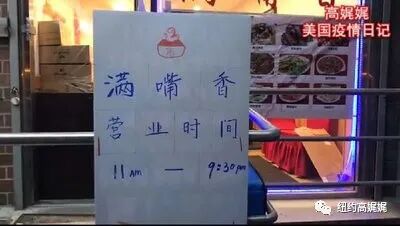 高娓娓
美国疫情日记
满嘴香
营业时间
11AM — 9:30pm
纽约高娓娓